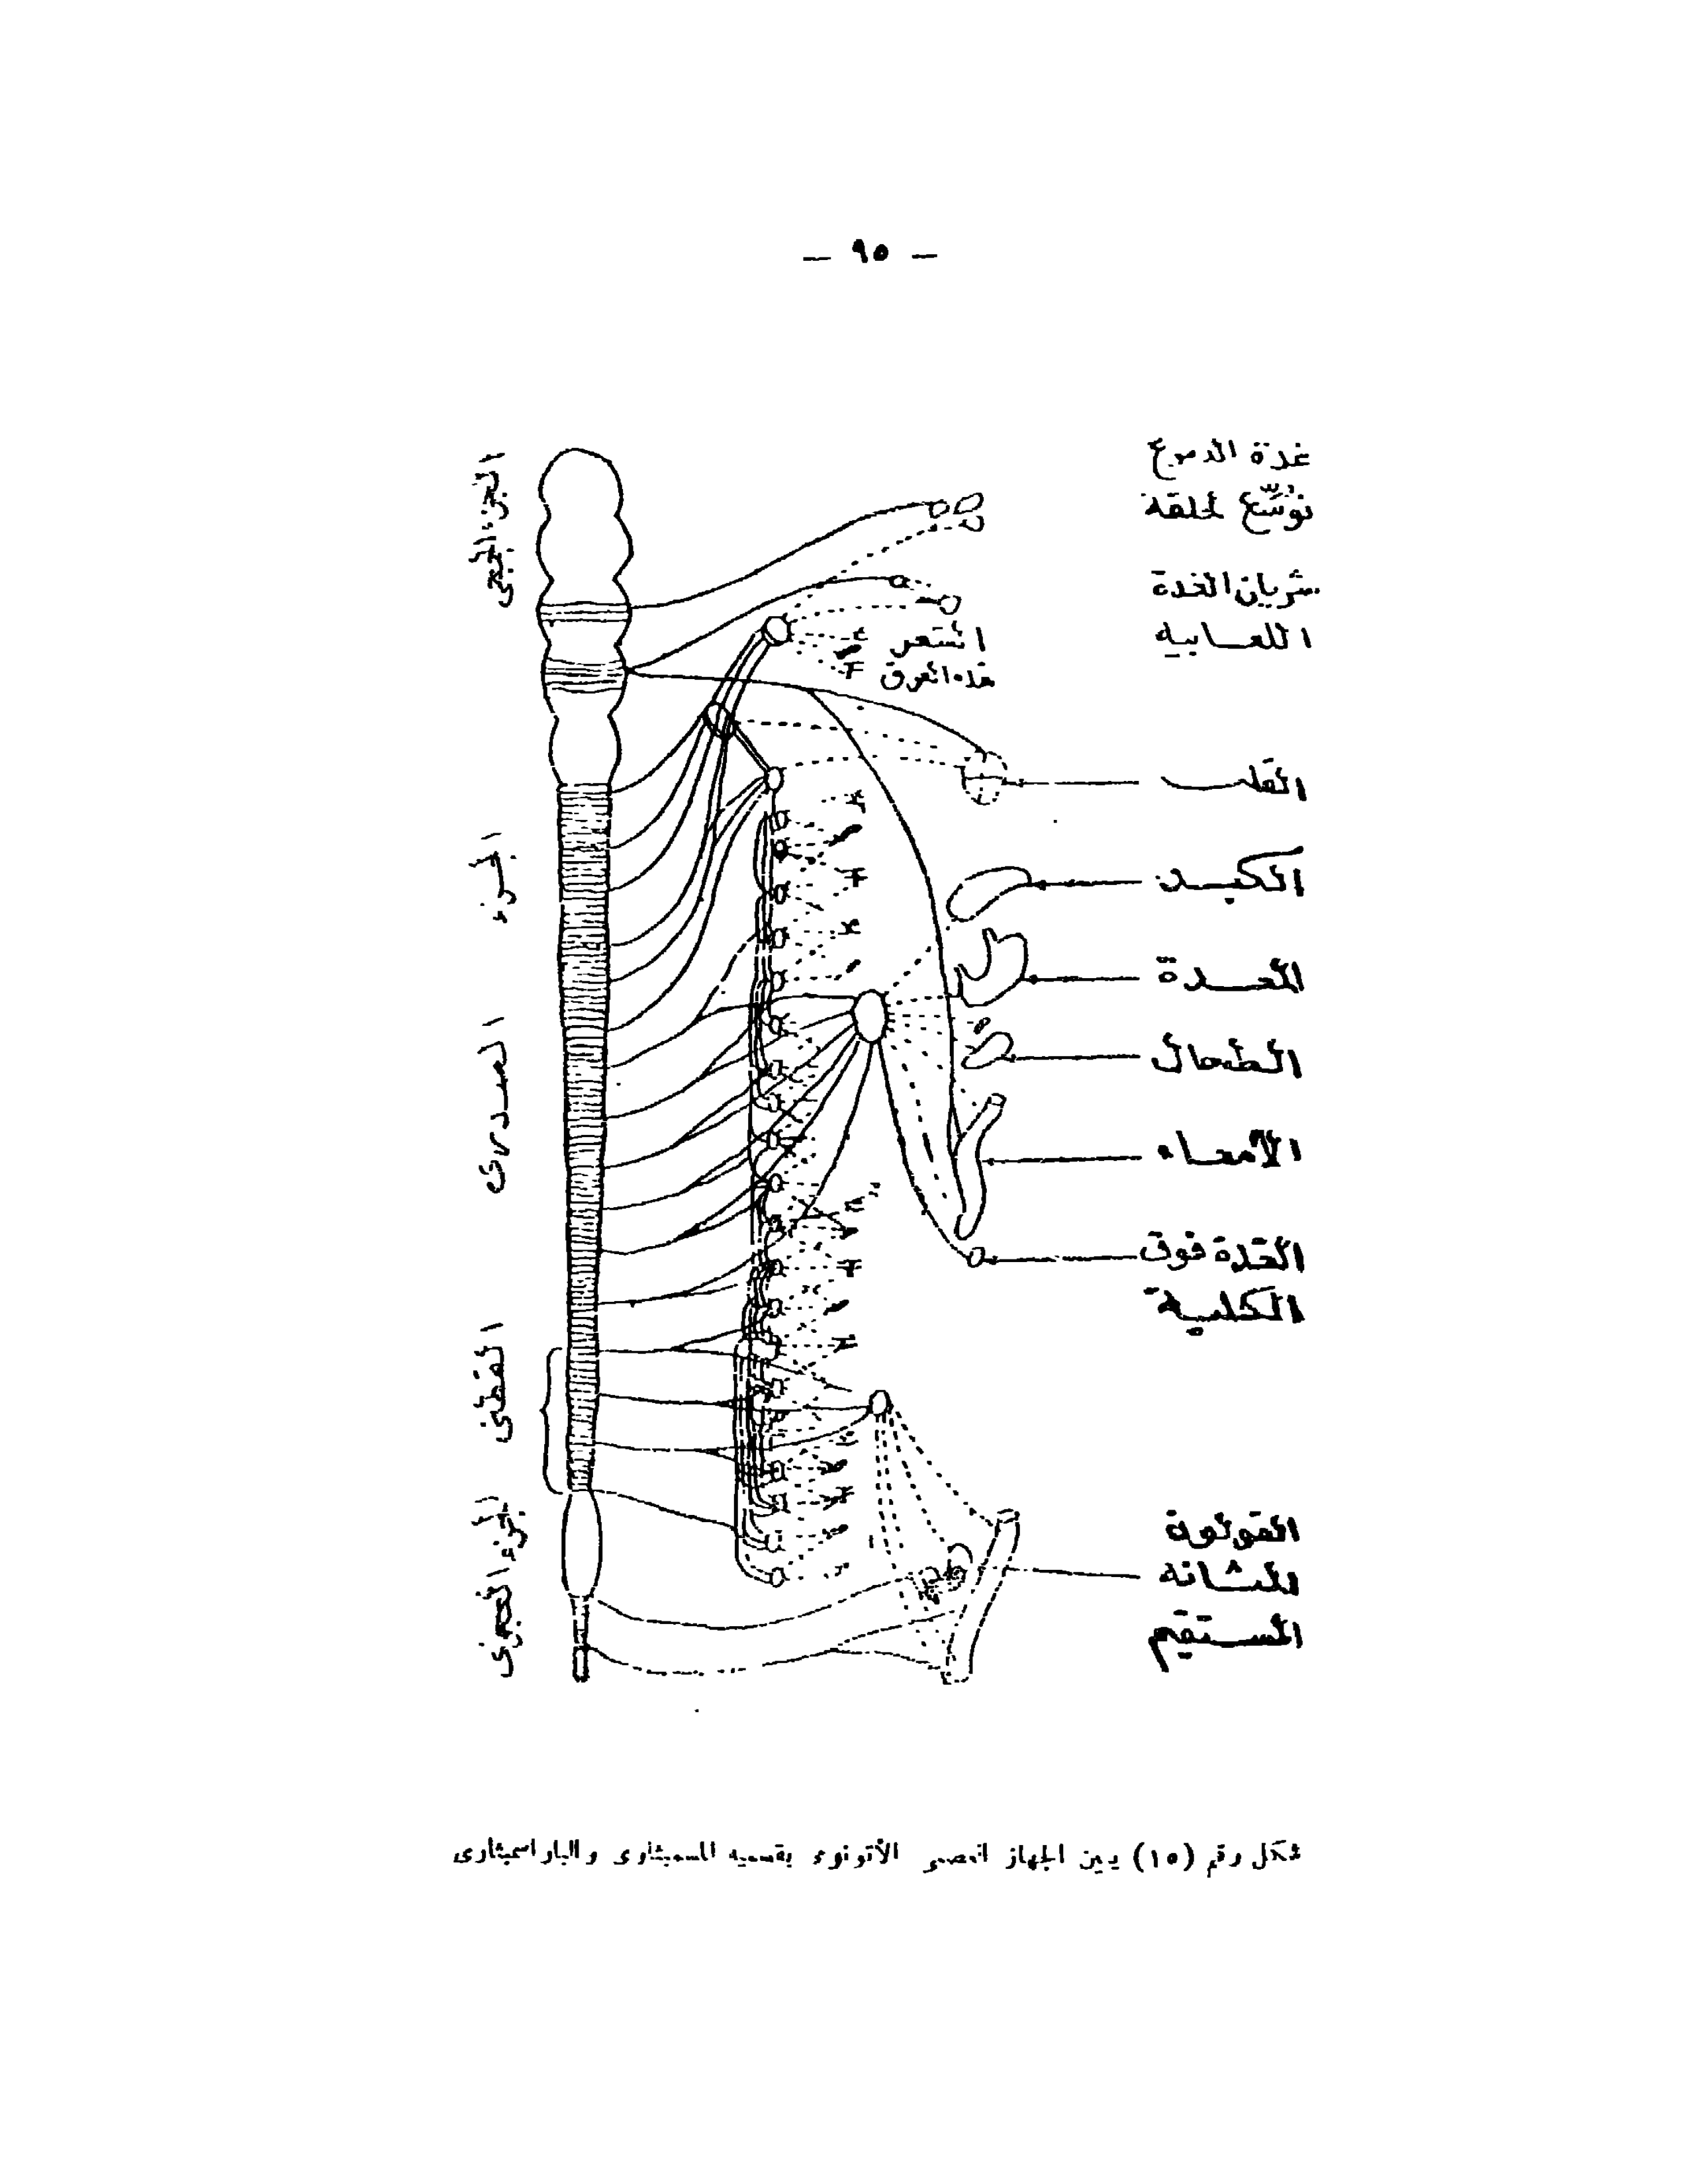 — ٩٥ —
غدة الدموع
توسّع الحلقة
شريان الغدة
اللعابية
الشعر
غدد العرق
القلب
الكبد
المعدة
الطحال
الأمعاء
الغدة فوق
الكلية
القولون
المثانة
المستقيم
الجزء المخي
الجزء
الصدرى
القطنى
الجزء العجزى
شكل رقم (١٥) يبين الجهاز العصبى الأتونومى بقسميه السمبثاوى والباراسمبثاوى